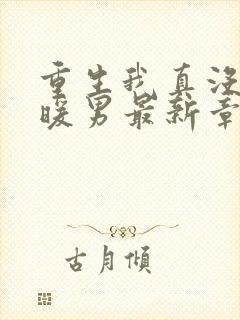 重生我真没
暖男最新章
古月傾